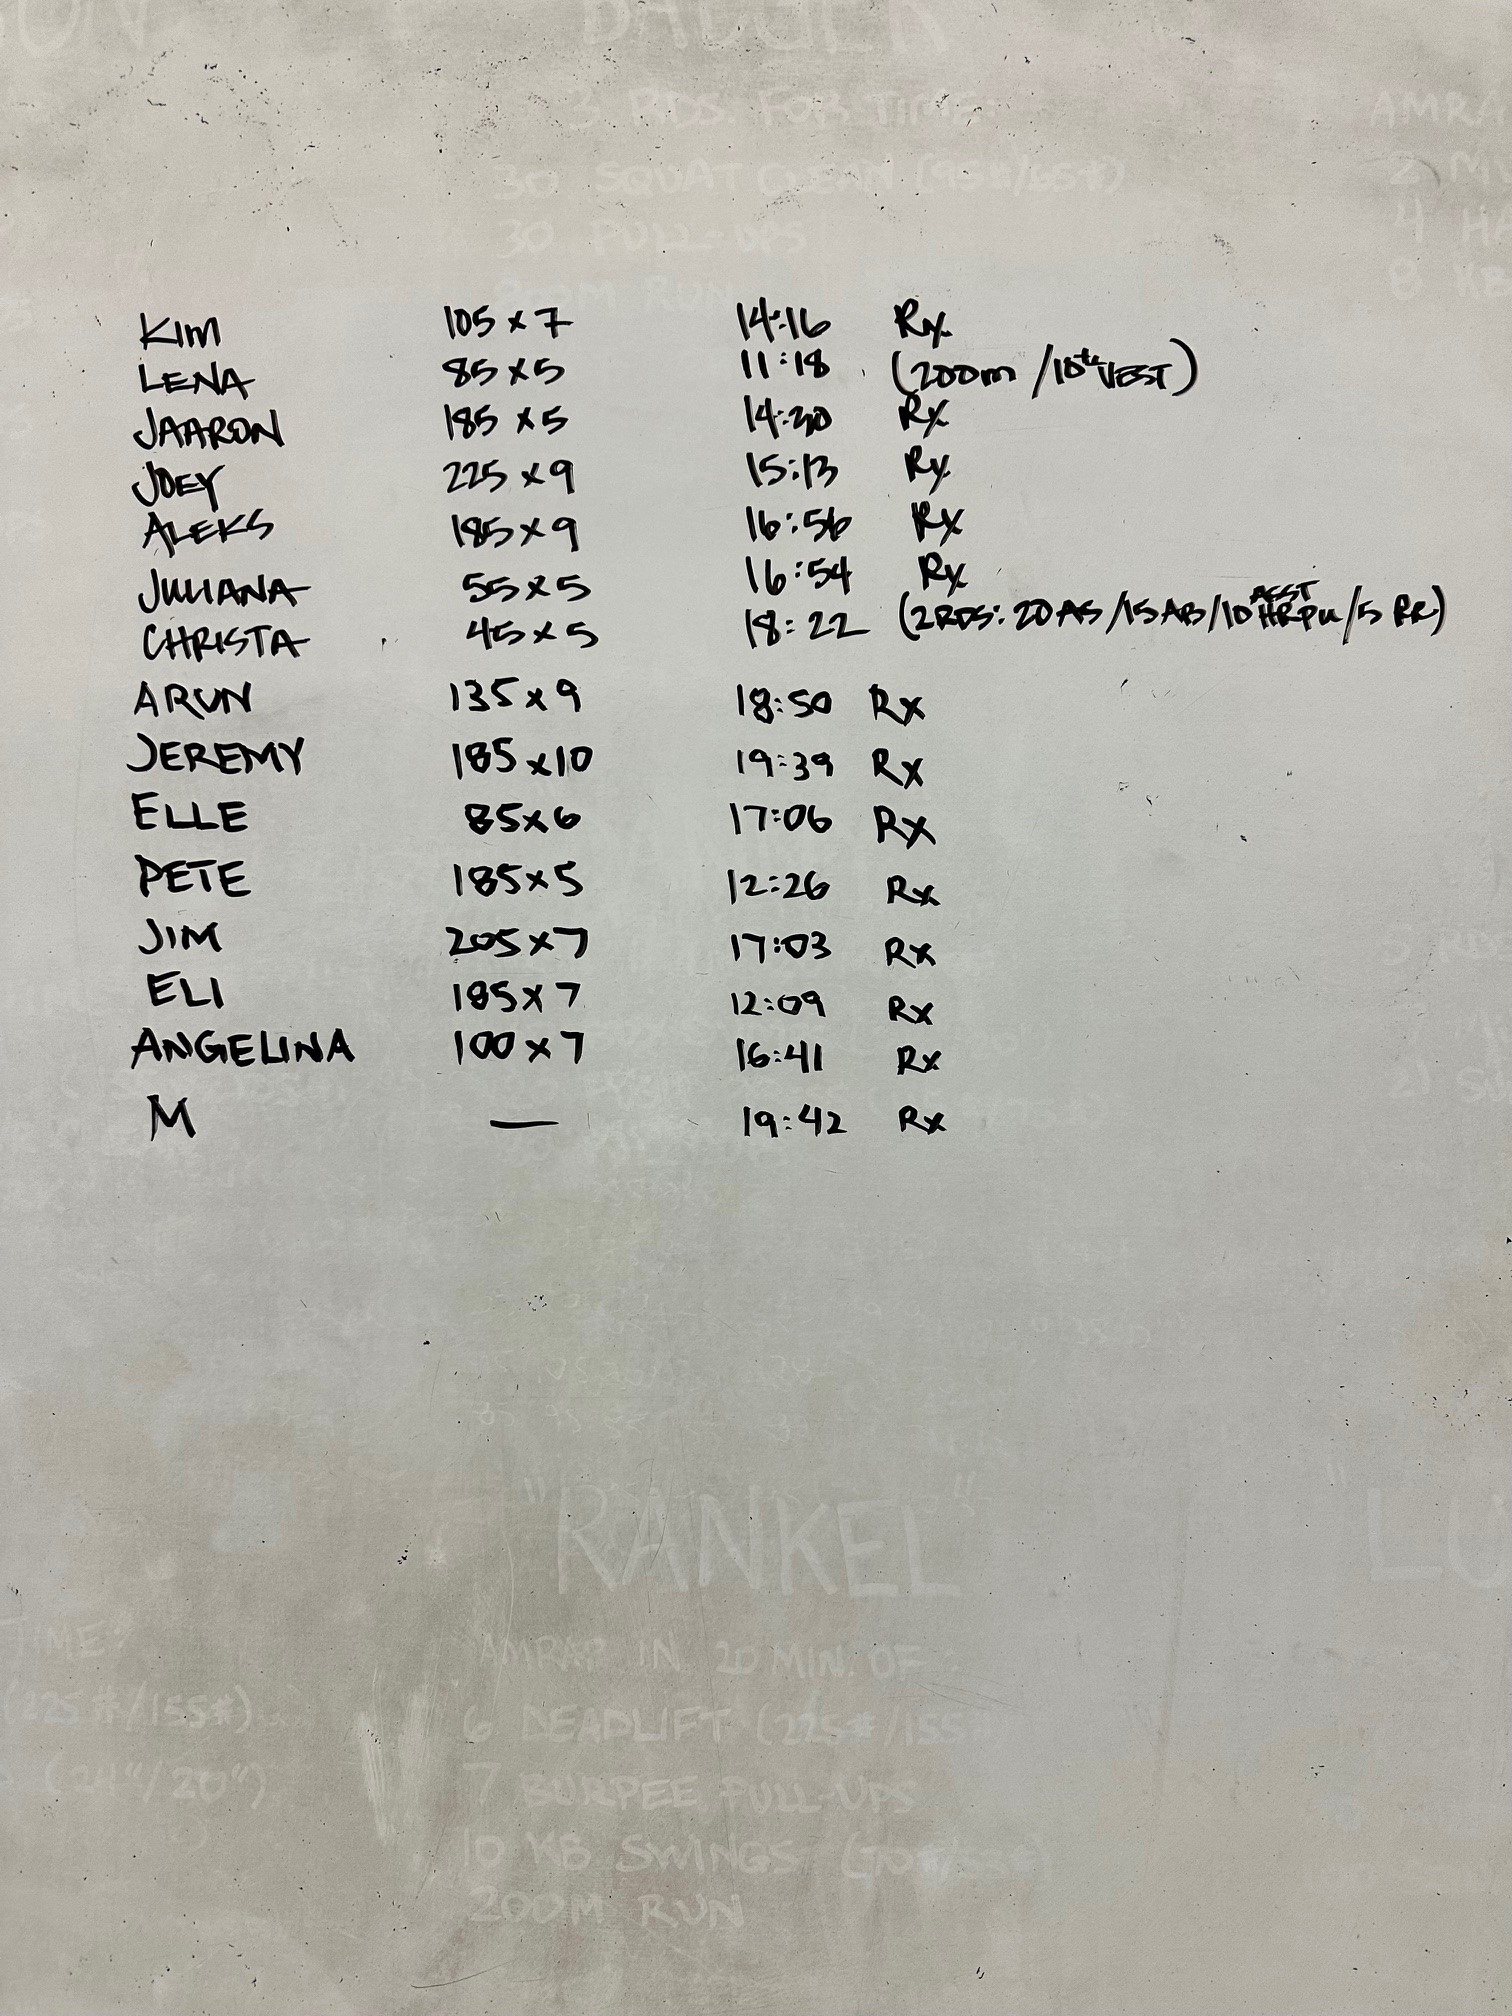 3 RDS. FOR TIME:
30 SQUAT CLEAN (95#/65#)
30 PULL-UPS
800M RUN
AMRA
2 MU
4 HA
8 KB
KIM 105 x 7 14:16 Rx
LENA 85 x 5 11:18 (200m /10# VEST)
JAARON 185 x 5 14:30 Rx
JOEY 225 x 9 15:13 Rx
ALEKS 185 x 9 16:56 Rx
JULIANA 55 x 5 16:54 Rx
CHRISTA 45 x 5 18:22 (2RDS: 20 AS /15 AB/10 ASST HRPU/5 RR)
ARUN 135 x 9 18:50 Rx
JEREMY 185 x 10 19:39 Rx
ELLE 85 x 6 17:06 Rx
PETE 185 x 5 12:26 Rx
JIM 205 x 7 17:03 Rx
ELI 185 x 7 12:09 Rx
ANGELINA 100 x 7 16:41 Rx
M — 19:42 Rx
"RANKEL"
"LU
TIME:
(225#/155#)
(24"/20")
AMRAP IN 20 MIN. OF:
6 DEADLIFT (225#/155#)
7 BURPEE PULL-UPS
10 KB SWINGS (70#/53#)
200M RUN